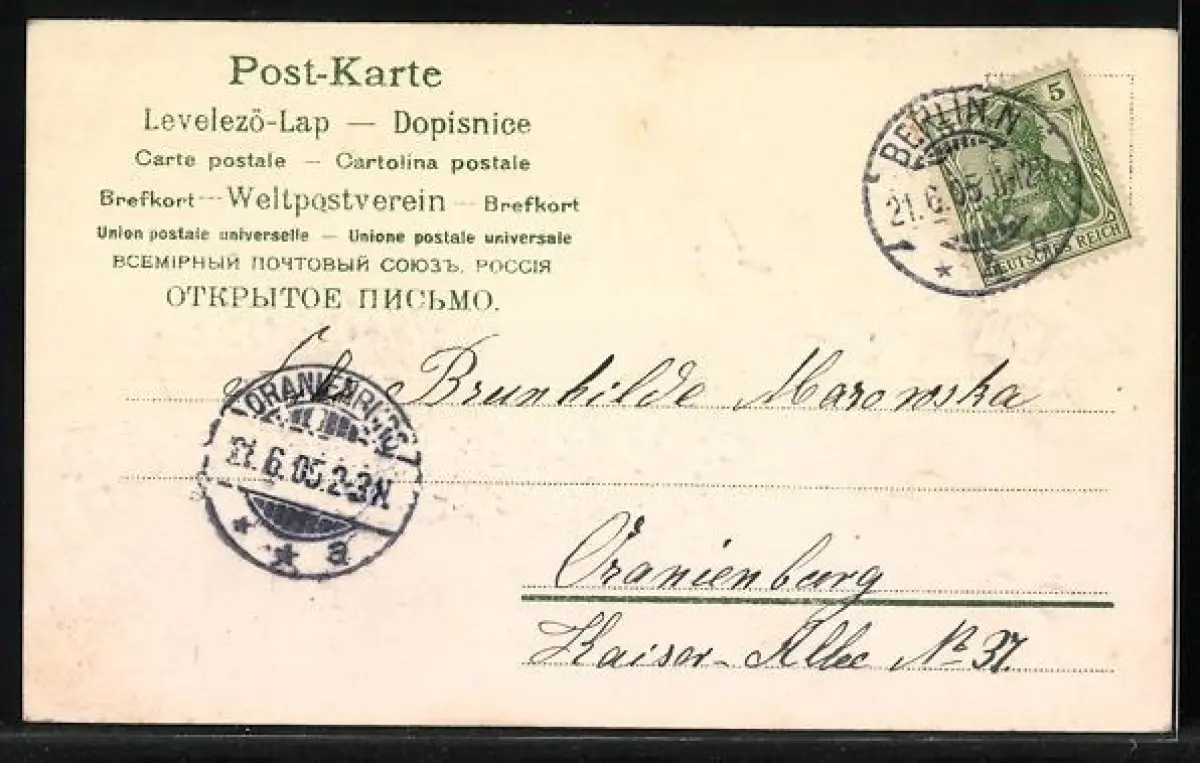 Post-Karte
Levelező-Lap — Dopisnice
Carte postale — Cartolina postale
Brefkort — Weltpostverein — Brefkort
Union postale universelle — Unione postale universale
ВСЕМІРНЫЙ ПОЧТОВЫЙ СОЮЗЪ. РОССІЯ
ОТКРЫТОЕ ПИСЬМО.
5
DEUTSCHES REICH
BERLIN.N
21.6.05.
Brunhilde Marowska
ORANIENBURG
21.6.05.2-3N
* * a
Oranienburg
Kaiser-Allee № 37.